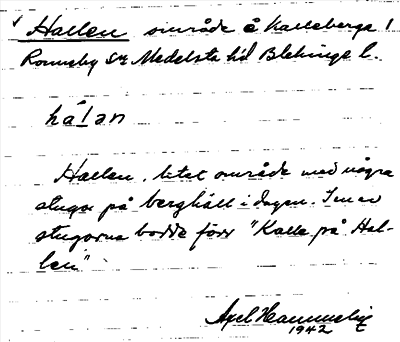 ✓ Hallen område å Kalleberga 1
Ronneby sn Medelsta hd Blekinge l.
hálan
Hallen, litet område med några
stugor på berghäll i dagen. I en av
stugorna bodde förr "Kalle på Hal-
len"
Axel
1942